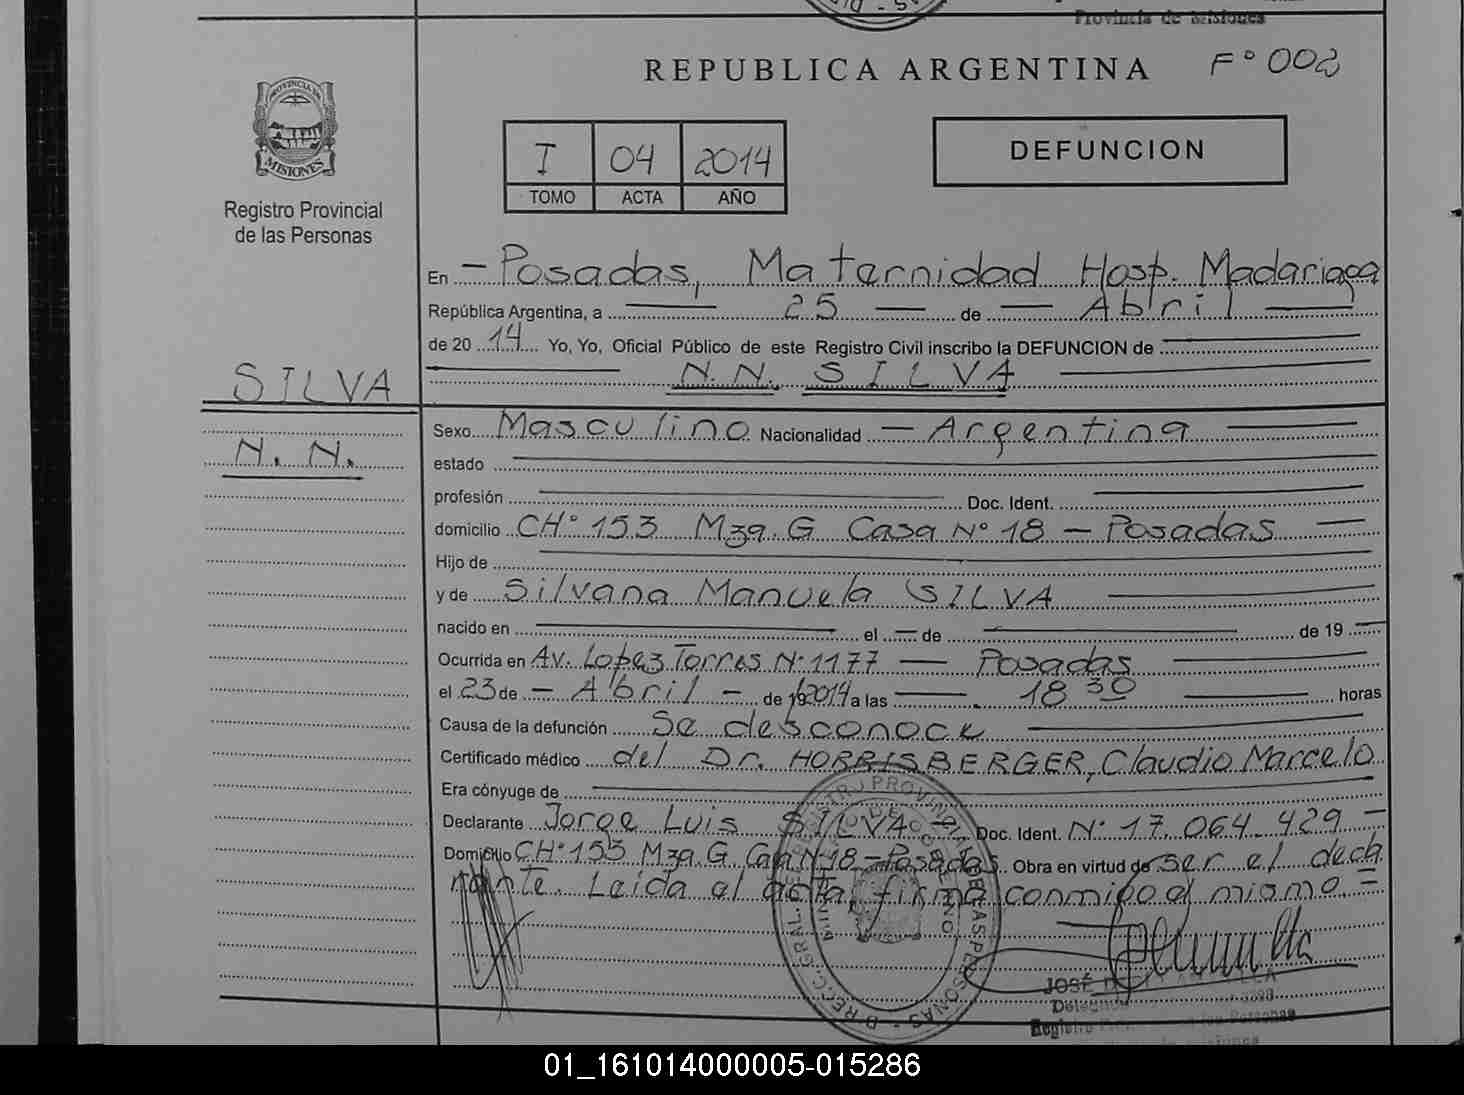 Provincia de Misiones
REPUBLICA ARGENTINA F° 002
PROVINCIA DE
MISIONES
Registro Provincial
de las Personas
I 04 2014
TOMO ACTA AÑO
DEFUNCION
En - Posadas, Maternidad Hosp. Madariaga
República Argentina, a 25 de Abril
de 20 14 Yo, Yo, Oficial Público de este Registro Civil inscribo la DEFUNCION de
N.N. SILVA
SILVA
N. N.
Sexo Masculino Nacionalidad - Argentina
estado
profesión Doc. Ident.
domicilio CH° 153 Mza. G Casa N° 18 - Posadas
Hijo de
y de Silvana Manuela SILVA
nacido en el - de de 19
Ocurrida en Av. Lopez Torres N° 1177 - Posadas
el 23 de - Abril - de 19 2014 a las 18 30 horas
Causa de la defunción Se desconoce
Certificado médico del Dr. HORRISBERGER, Claudio Marcelo
Era cónyuge de
Declarante Jorge Luis SILVA - Doc. Ident. N° 17.064.429 -
Domicilio CH° 153 Mza. G Casa N° 18 - Posadas. Obra en virtud de ser el decla
rante. Leida el acta, firma conmigo el mismo =
JOSÉ
Registro
01_161014000005-015286